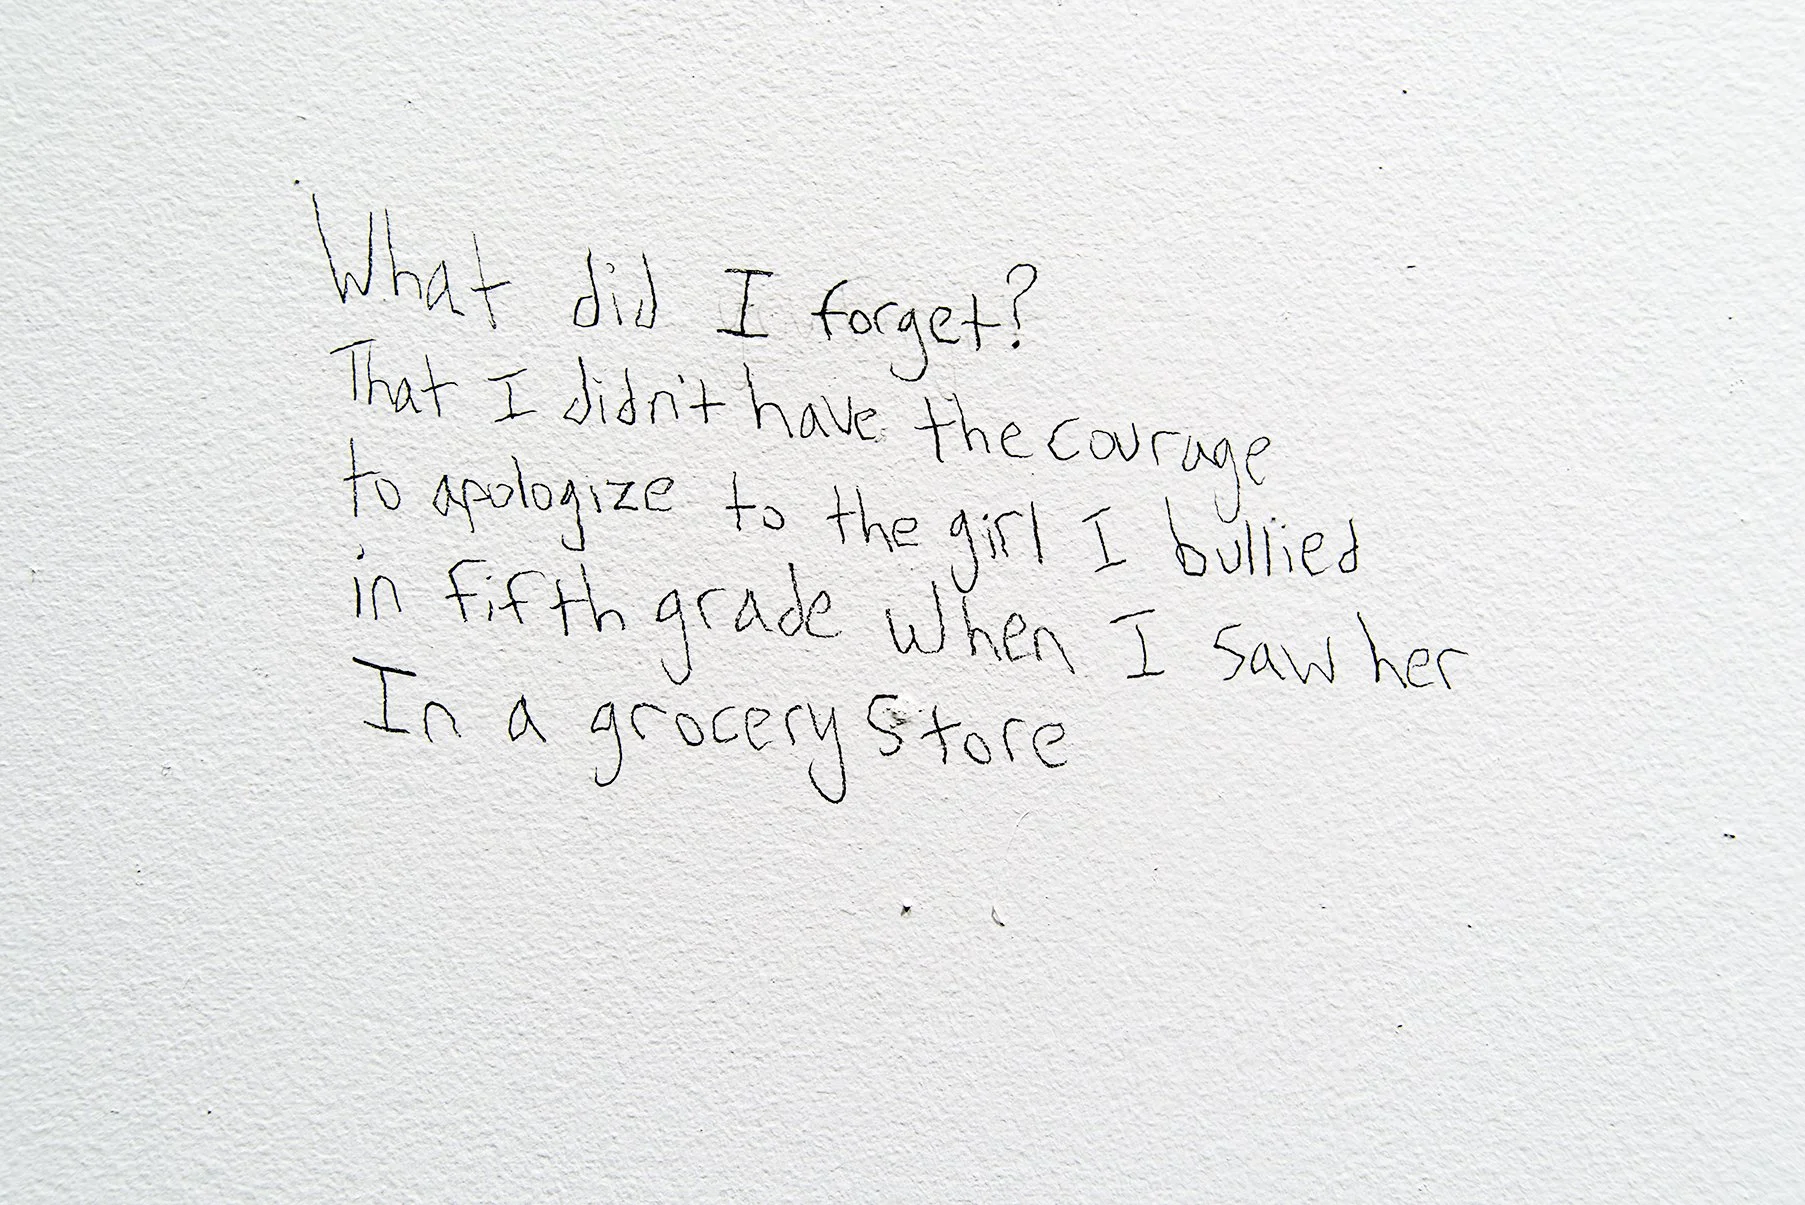 What did I forget?
That I didn't have the courage
to apologize to the girl I bullied
in fifth grade when I saw her
In a grocery store